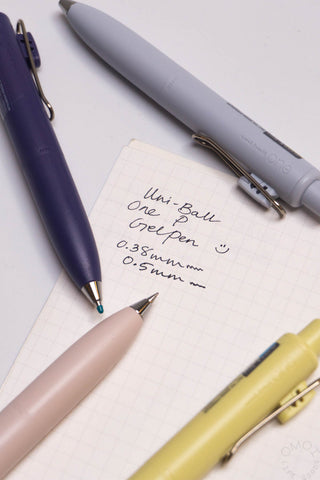 Uni-Ball
One P
Gel Pen ☺
0.38mm
0.5mm
one
OMOI